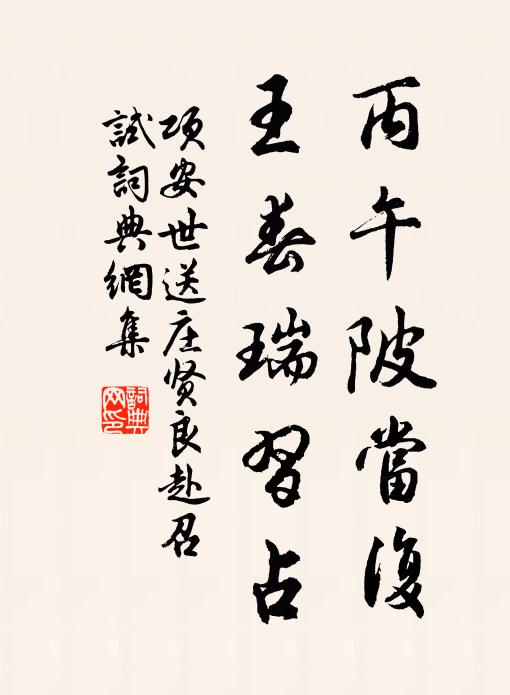 丙午陂當復
王春瑞習占
项安世送庄贤良赴召
試詞典網集
詞典
网印